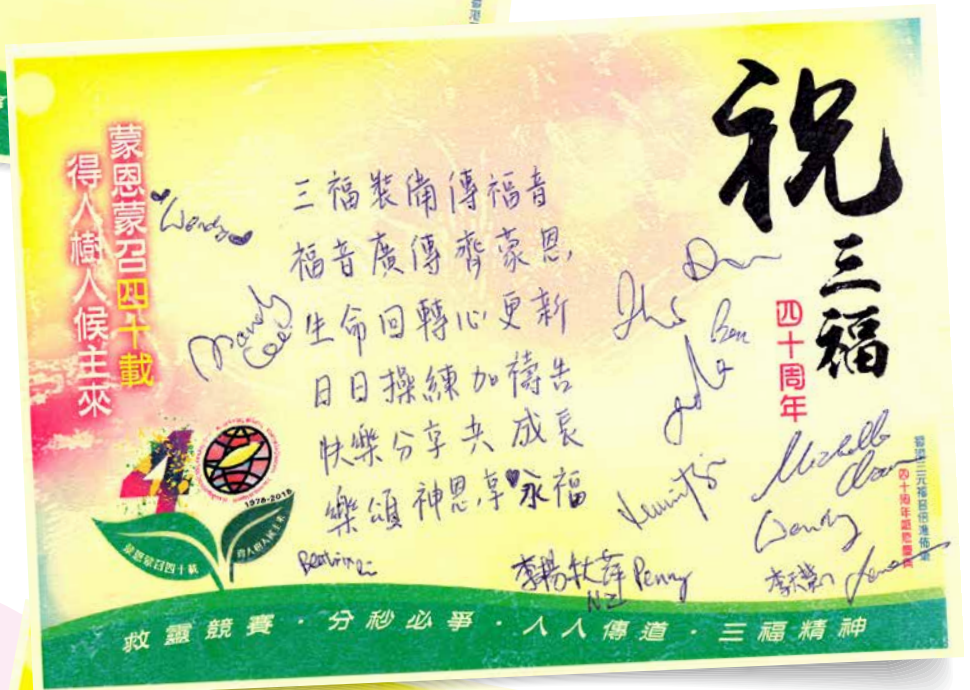 祝三福
四十周年
蒙恩蒙召四十載
得人樹人候主來
三福裝備傳福音
福音廣傳齊蒙恩
生命回轉心更新
日日操練加禱告
快樂分享共成長
樂頌神恩享♥永福
Wendy
Mandy Lee
Ben
Michelle Chan
Wendy
李楊秋萍 Penny
NZ
1978-2018
蒙恩蒙召四十載
得人樹人候主來
救靈競賽・分秒必爭・人人傳道・三福精神